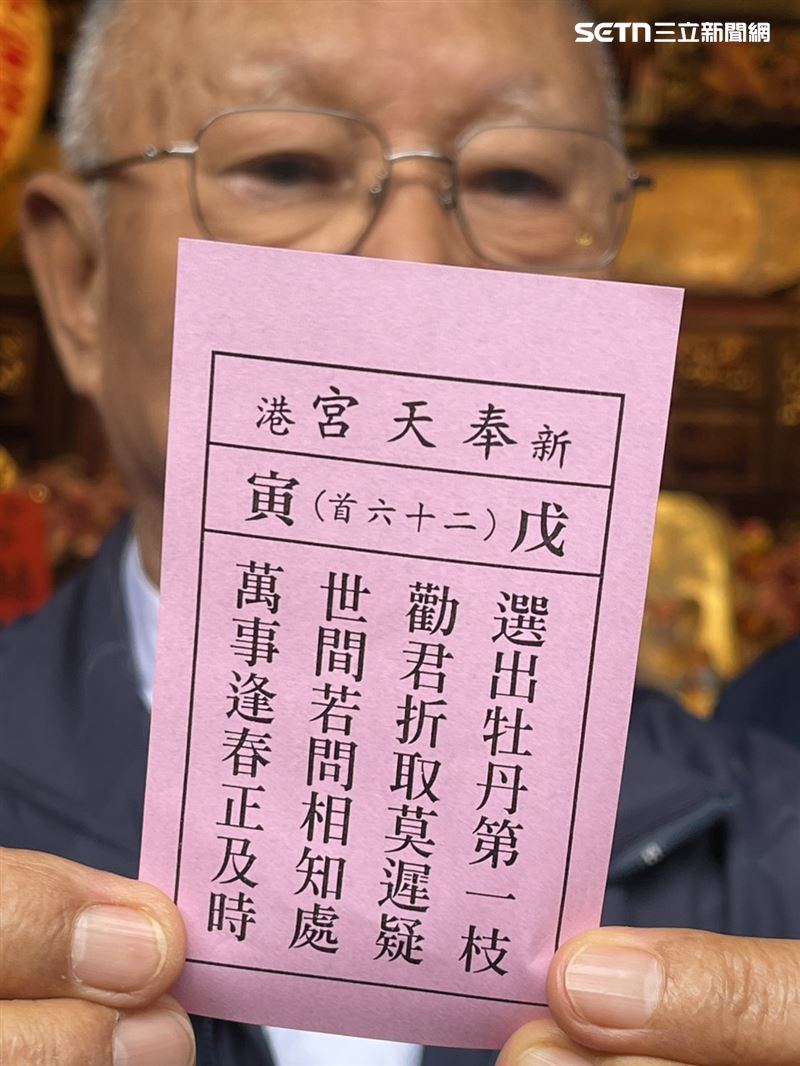 SETN三立新聞網
新奉天宮港
戊(二十六首)寅
選出牡丹第一枝
勸君折取莫遲疑
世間若問相知處
萬事逢春正及時